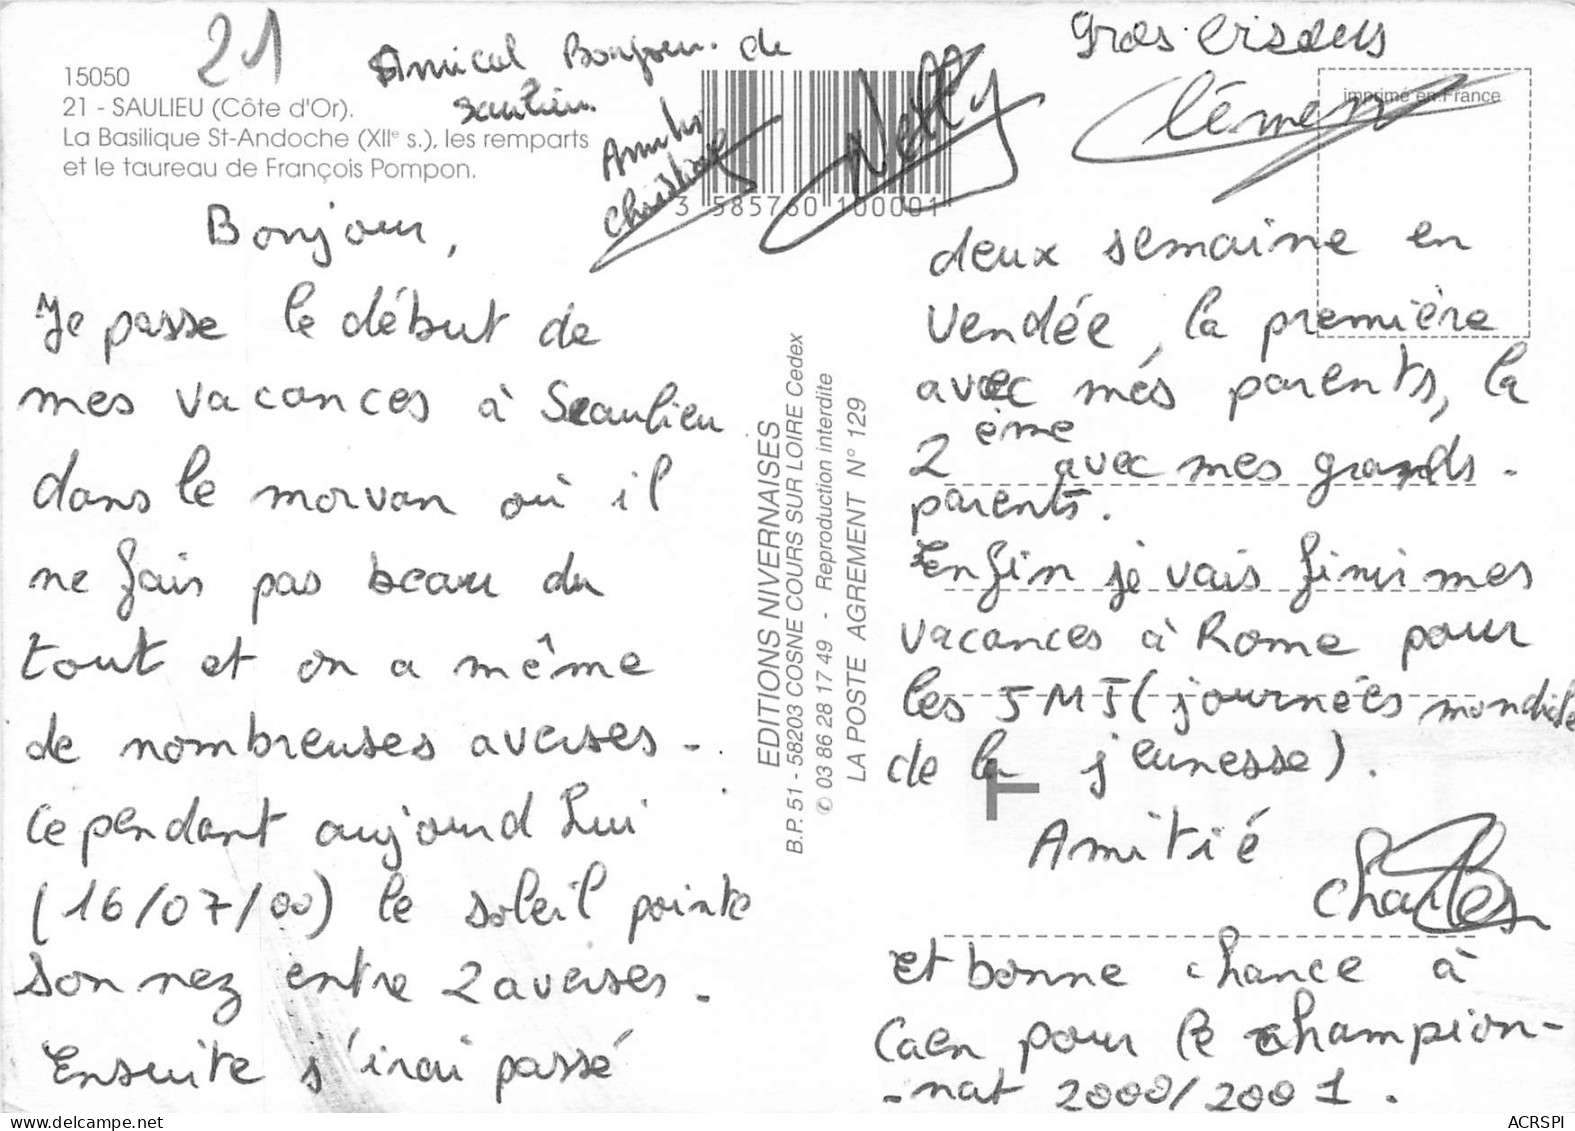 21
15050
21 - SAULIEU (Côte d'Or).
La Basilique St-Andoche (XIIe s.), les remparts
et le taureau de François Pompon.
Amical Bonjour de
Saulieu
Christiane
Netty
3 585760 100001
Gros bisous
Clément
imprimé en France
Bonjour,
Je passe le début de
mes vacances à Saulieu
dans le morvan où il
ne fais pas beau du
tout et on a même
de nombreuses averses.
Cependant aujourd hui
(16/07/00) le soleil pointe
son nez entre 2 averses.
Ensuite j'irai passé
EDITIONS NIVERNAISES
B.P. 51 - 58203 COSNE COURS SUR LOIRE Cedex
© 03 86 28 17 49 - Reproduction interdite
LA POSTE AGREMENT N° 129
deux semaine en
Vendée, la première
avec més parents, la
2ème avec mes grands-
parents.
Enfin je vais finir mes
vacances à Rome pour
les JMJ (journées mondiale
de la jeunesse).
T
Amitié
Charles
et bonne chance à
Caen pour le champion-
-nat 2000/2001.
ACRSPI